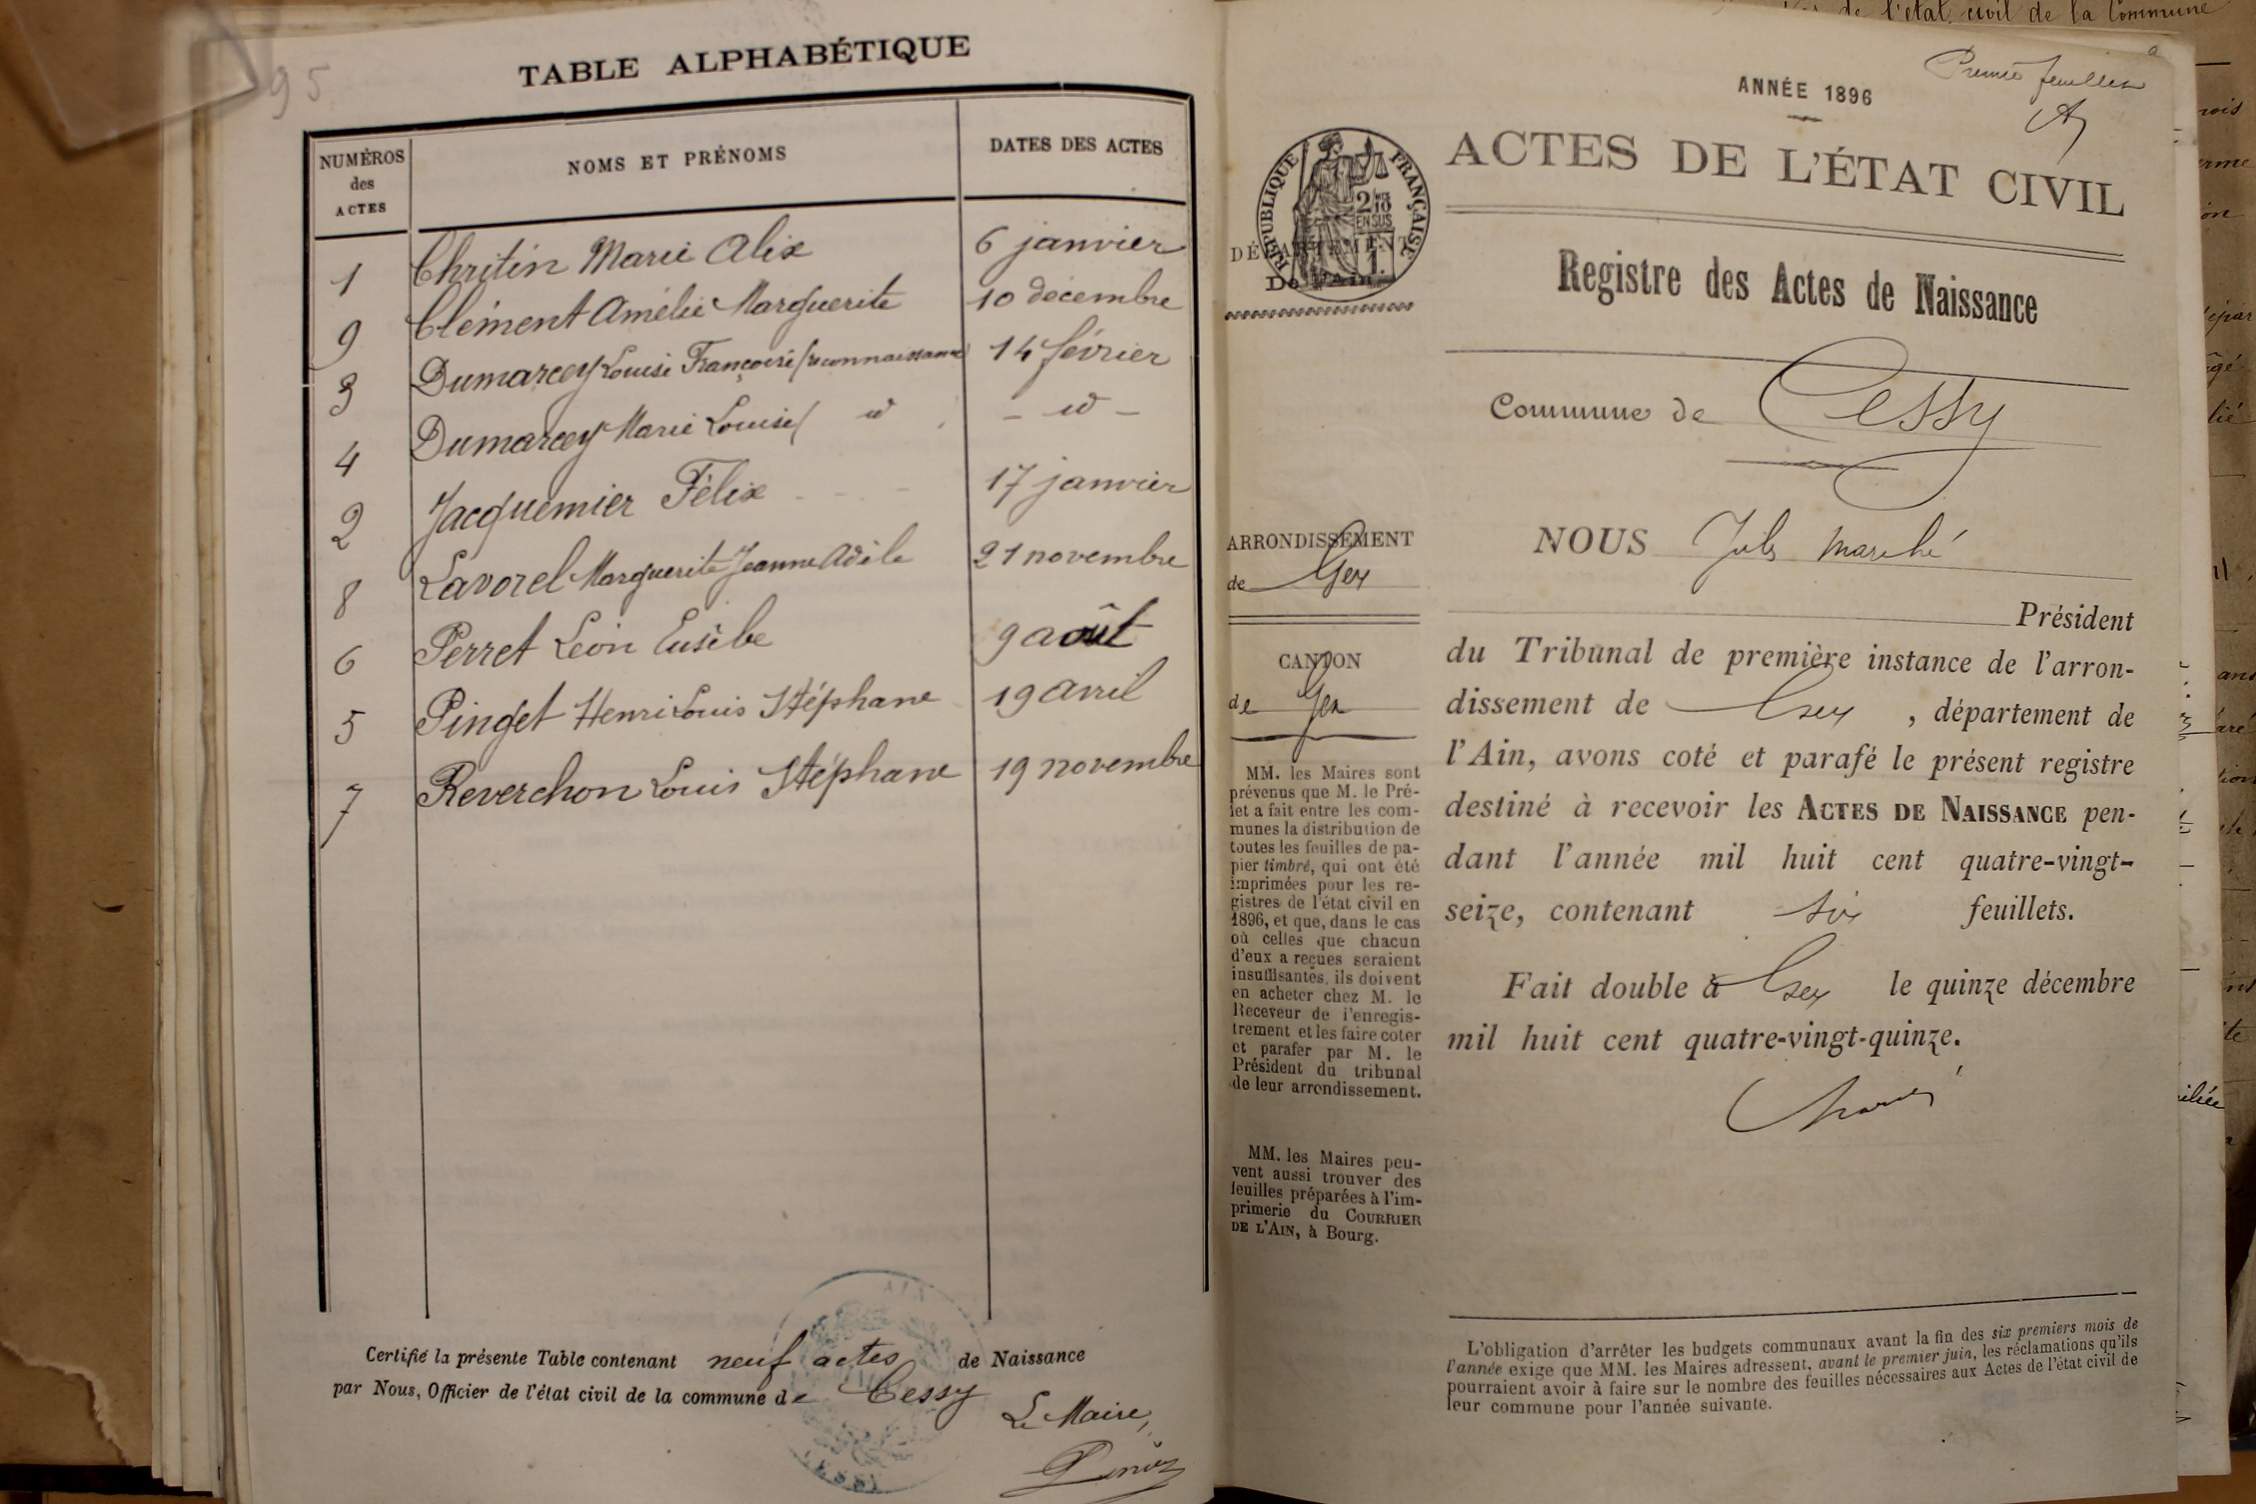 95
TABLE ALPHABÉTIQUE
NUMÉROS
des
ACTES
NOMS ET PRÉNOMS
DATES DES ACTES
1 Chritin Marie Alix 6 janvier
9 Clément Amélie Marguerite 10 décembre
3 Dumarcey Louise Françoise (reconnaissance) 14 février
4 Dumarcey Marie Louise ( id – id –
2 Jacquemier Félix 17 janvier
8 Lavorel Marguerite Jeanne Adèle 21 novembre
6 Perret Léon Eusèbe 9 août
5 Pinget Henri Louis Stéphane 19 avril
7 Reverchon Louis Stéphane 19 novembre
Certifié la présente Table contenant neuf actes de Naissance
par Nous, Officier de l'état civil de la commune de Cessy
Le Maire,
de l'état civil de la Commune
Premier feuillet
ANNÉE 1896
ACTES DE L'ÉTAT CIVIL
RÉPUBLIQUE FRANÇAISE
2/10
EN SUS
DÉPARTEMENT
De l'Ain
Registre des Actes de Naissance
Commune de Cessy
ARRONDISSEMENT
de Gex
CANTON
de Gex
MM. les Maires sont
prévenus que M. le Pré-
fet a fait entre les com-
munes la distribution de
toutes les feuilles de pa-
pier timbré, qui ont été
imprimées pour les re-
gistres de l'état civil en
1896, et que, dans le cas
où celles que chacun
d'eux a reçues seraient
insuffisantes, ils doivent
en acheter chez M. le
Receveur de l'enregis-
trement et les faire coter
et parafer par M. le
Président du tribunal
de leur arrondissement.
MM. les Maires peu-
vent aussi trouver des
feuilles préparées à l'im-
primerie du COURRIER
DE L'AIN, à Bourg.
NOUS Jules Marché
Président
du Tribunal de première instance de l'arron-
dissement de Gex, département de
l'Ain, avons coté et parafé le présent registre
destiné à recevoir les ACTES DE NAISSANCE pen-
dant l'année mil huit cent quatre-vingt-
seize, contenant six feuillets.
Fait double à Gex le quinze décembre
mil huit cent quatre-vingt-quinze.
L'obligation d'arrêter les budgets communaux avant la fin des six premiers mois de
l'année exige que MM. les Maires adressent, avant le premier juin, les réclamations qu'ils
pourraient avoir à faire sur le nombre des feuilles nécessaires aux Actes de l'état civil de
leur commune pour l'année suivante.